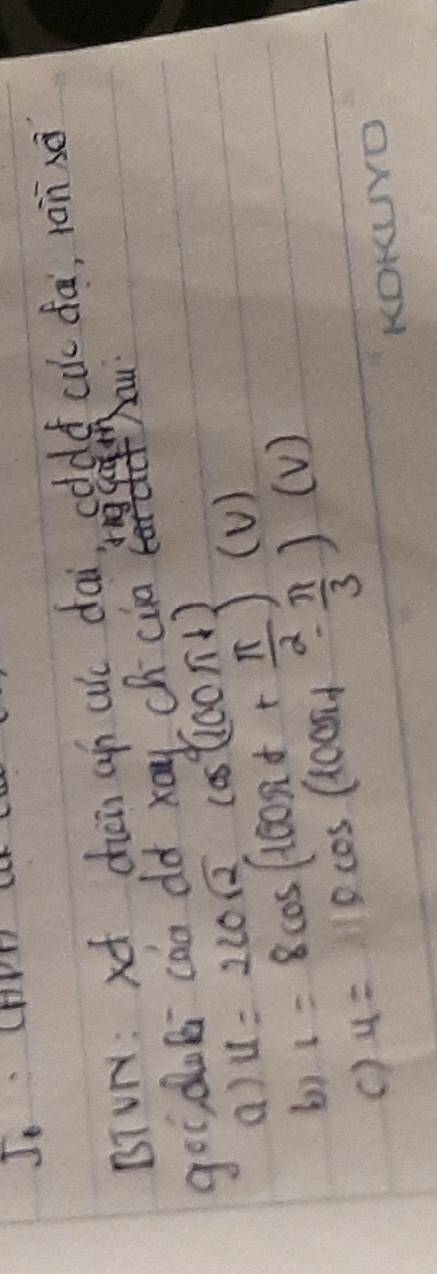 BTVN: xđ điện áp cực đại, cdđđ cực đại, tần số
góc, của dđ xoay ch của sau:
a) u = 220√2 cos (100πt) (V)
b) i = 8 cos (100πt + π/2) (V)
c) u = 110 cos (100πt - π/3) (V)
KOKUYO